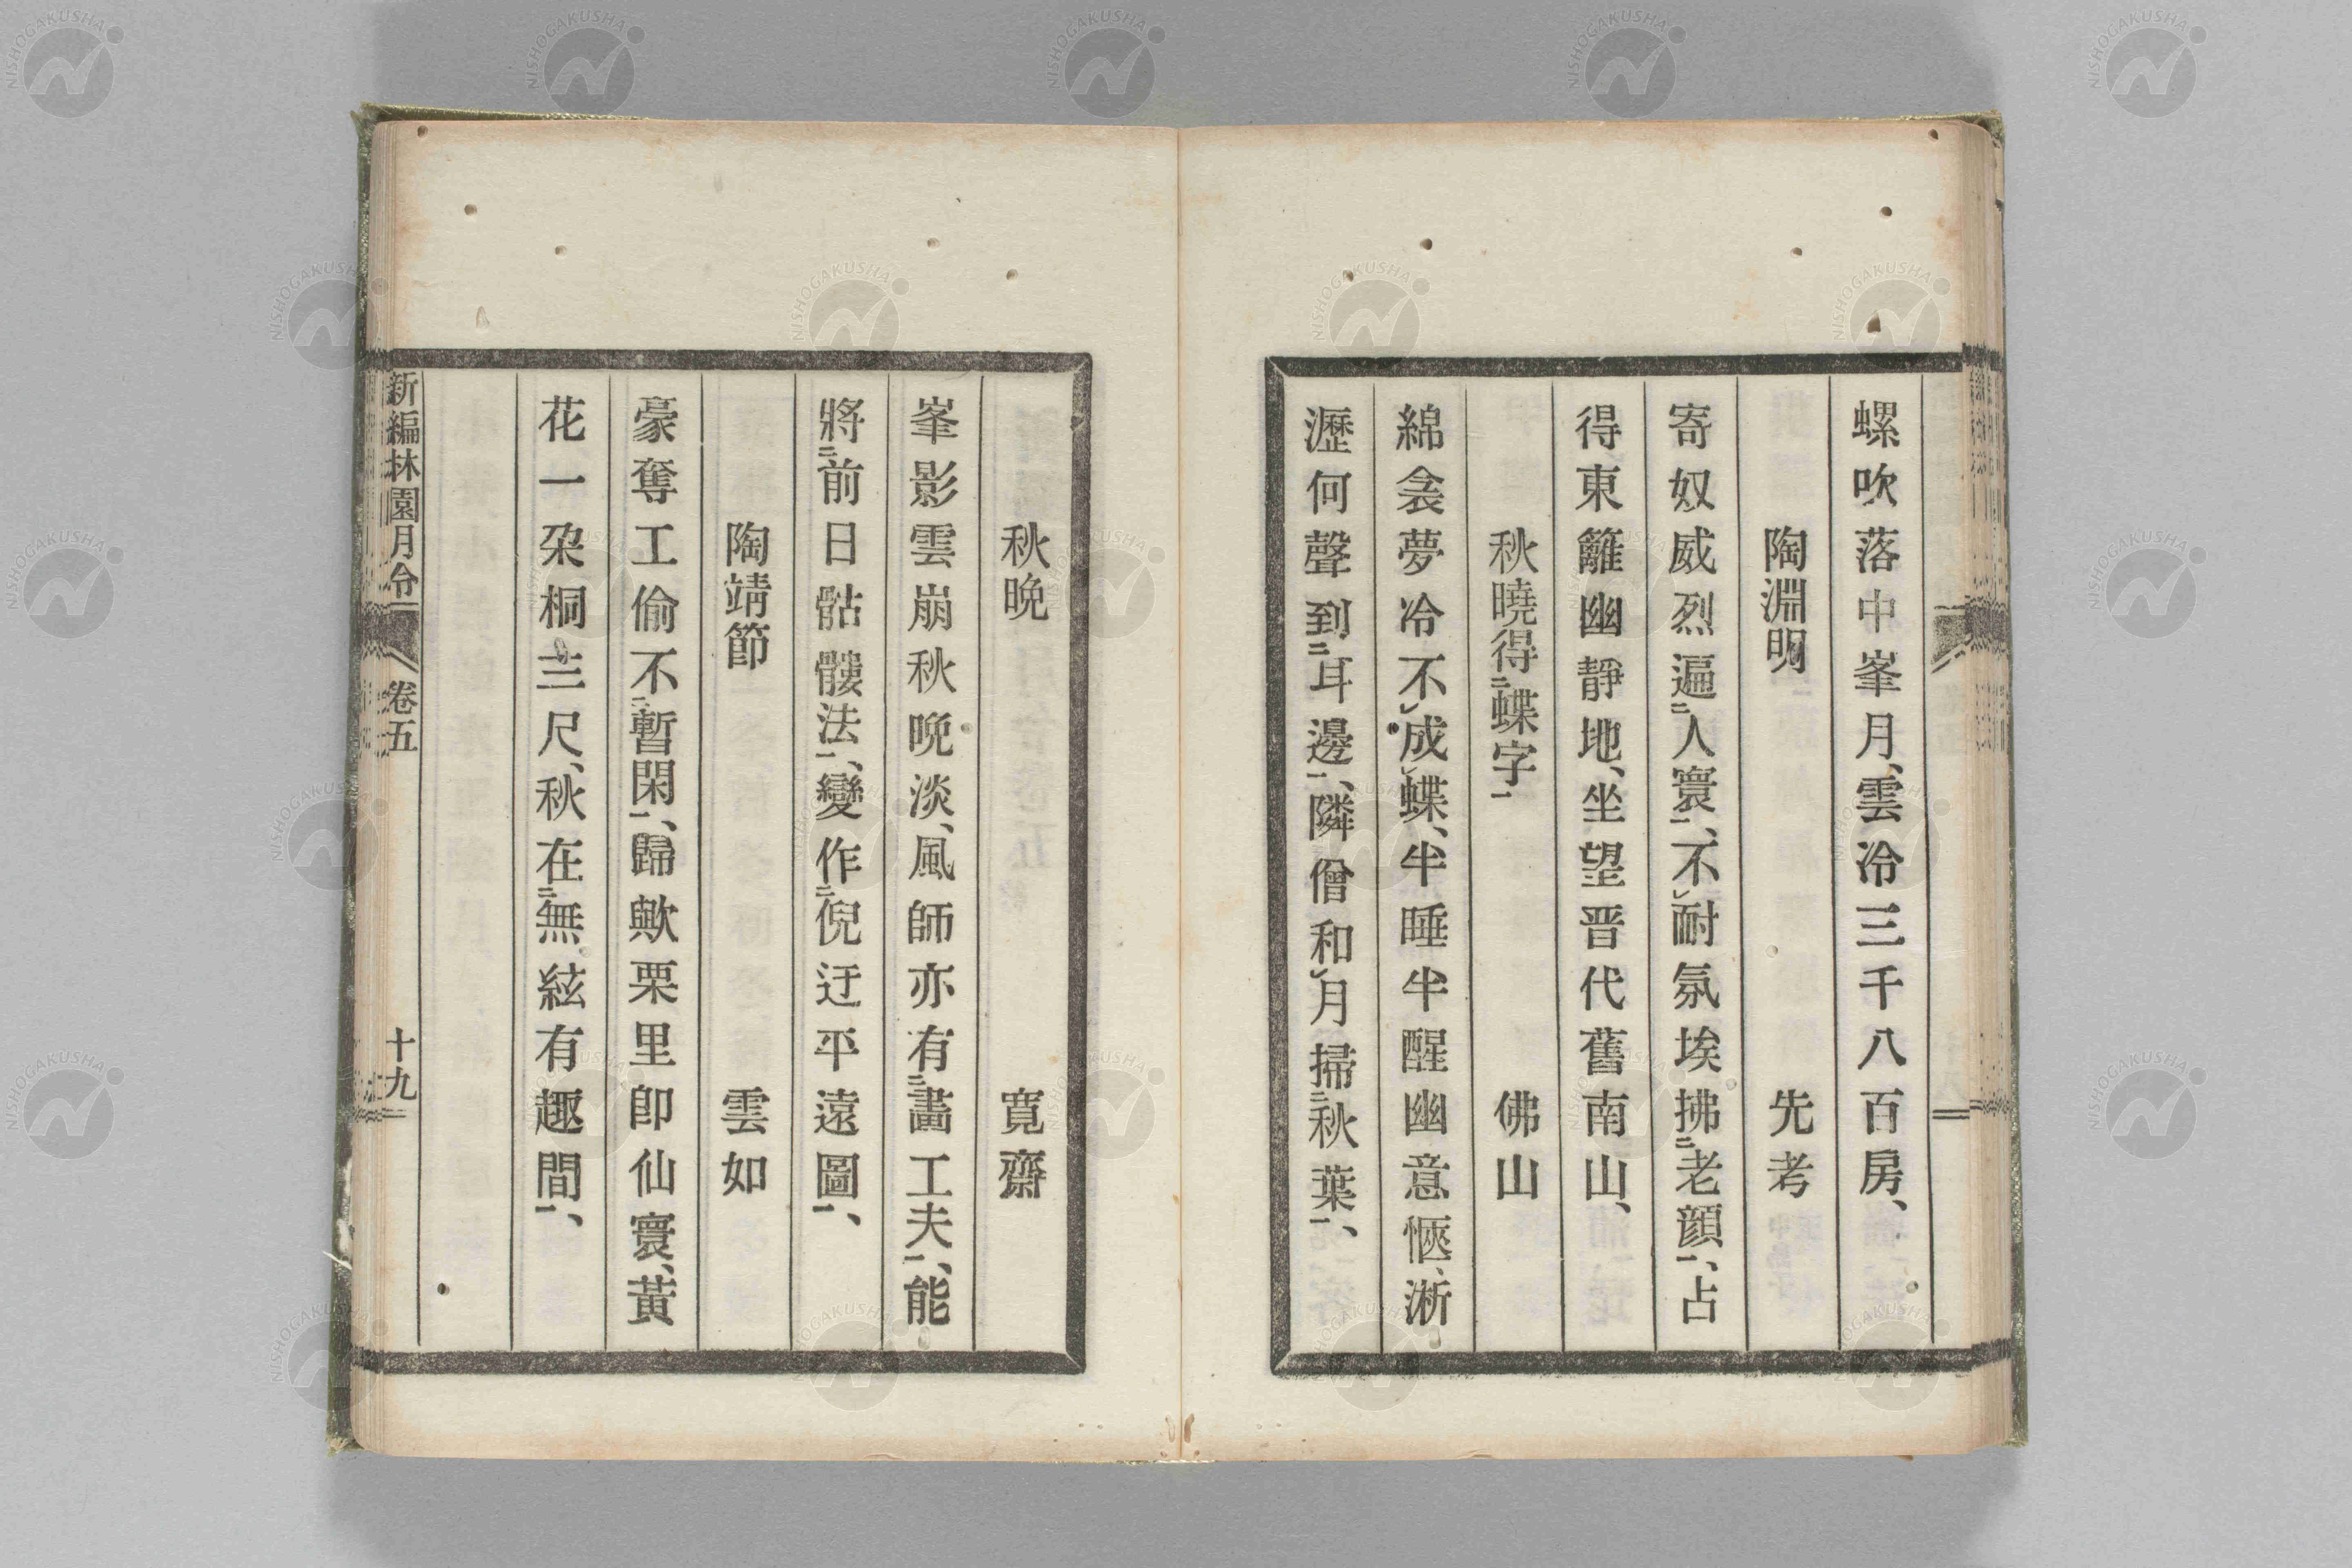 螺吹落中峯月、雲冷三千八百房、
陶淵明　先考
寄奴威烈遍㆓人寰㆒、不㆑耐氛埃拂㆓老顏㆒、占
得東籬幽靜地、坐望晋代舊南山、
秋曉得㆓蝶字㆒　佛山
綿衾夢冷不㆑成㆑蝶、半睡半醒幽意愜、淅
瀝何聲到㆓耳邊㆒、隣僧和㆑月掃㆓秋葉㆒、
秋晩　寬齋
峯影雲崩秋晩淡、風師亦有㆓畵工夫㆒、能
將㆓前日骷髏法㆒、變作㆓倪迂平遠圖㆒、
陶靖節　雲如
豪奪工偷不㆓暫閑㆒、歸歟栗里卽仙寰、黃
花一朶桐三尺、秋在㆓無絃有趣間㆒、
新編林園月令　卷五　十九
NISHOGAKUSHA